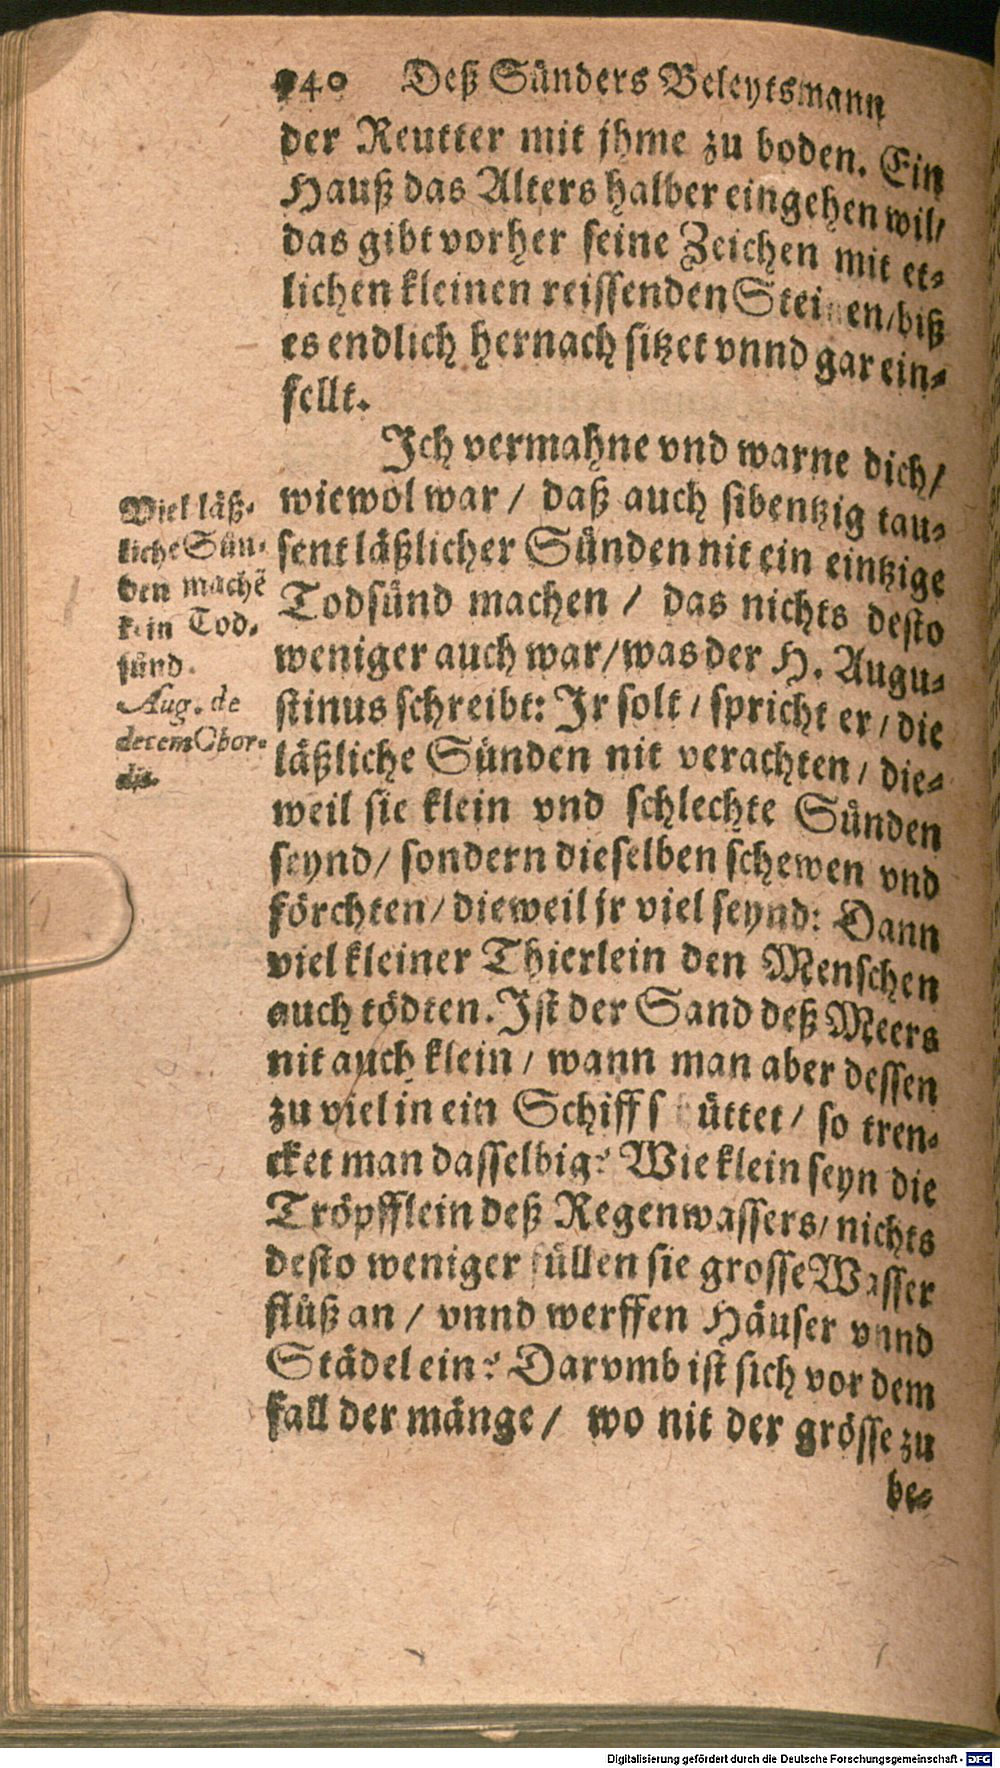 240 Deß Sünders Beleytsmann
der Reutter mit jhme zu boden. Ein
Hauß das Alters halber eingehen wil/
das gibt vorher seine Zeichen mit et-
lichen kleinen reissenden Steinen/ biß
es endlich hernach sitzet vnnd gar ein-
fellt.
Ich vermahne vnd warne dich/
wiewol war / daß auch sibentzig tau-
sent läßlicher Sünden nit ein eintzige
Todsünd machen / das nichts desto
weniger auch war/ was der H. Augu-
stinus schreibt: Jr solt / spricht er / die
läßliche Sünden nit verachten / die-
weil sie klein vnd schlechte Sünden
seynd/ sondern dieselben schewen vnd
förchten/ dieweil jr viel seynd: Dann
viel kleiner Thierlein den Menschen
auch tödten. Ist der Sand deß Meers
nit auch klein / wann man aber dessen
zu viel in ein Schiff schüttet/ so tren-
cket man dasselbig? Wie klein seyn die
Tröpfflein deß Regenwassers/ nichts
desto weniger füllen sie grosse Wasser
flüß an / vnnd werffen Häuser vnnd
Städel ein? Darvmb ist sich vor dem
fall der mänge / wo nit der grösse zu
be-
Viel läß-
liche Sün-
den machẽ
kein Tod-
sünd.
Aug. de
decem Chor-
dis.
Digitalisierung gefördert durch die Deutsche Forschungsgemeinschaft - DFG